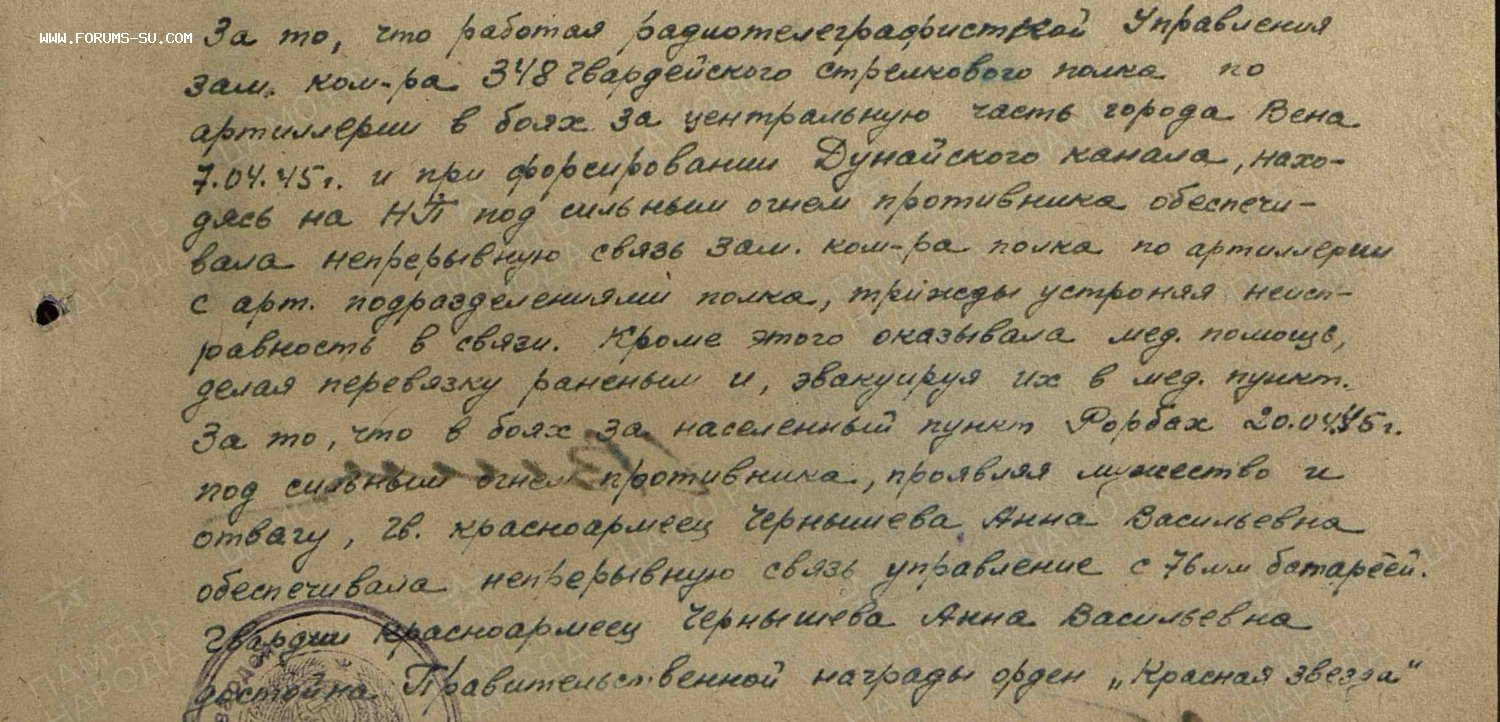 WWW.FORUMS-SU.COM
За то, что работая радиотелеграфисткой Управления
зам. ком-ра 348 гвардейского стрелкового полка по
артиллерии в боях за центральную часть города Вена
7.04.45г. и при форсировании Дунайского канала, нахо-
дясь на НП под сильным огнем противника обеспечи-
вала непрерывную связь зам. ком-ра полка по артиллерии
с арт. подразделениями полка, трижды устроняя неисп-
равность в связи. Кроме этого оказывала мед. помощь,
делая перевязку раненым и, эвакуируя их в мед. пункт.
За то, что в боях за населенный пункт Рорбах 20.04.45г.
под сильным огнем противника, проявляя мужество и
отвагу, гв. красноармеец Чернышева Анна Васильевна
обеспечивала непрерывную связь управление с 76мм батареей.
Гвардии красноармеец Чернышева Анна Васильевна
достойна Правительственной награды орден „Красная звезда"